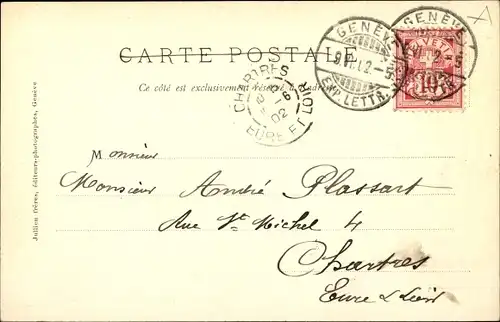 CARTE POSTALE
Ce côté est exclusivement réservé à l'adresse.
GENÈVE
EXP. LETTR.
GENÈVE
HELVETIA
10
CHARTRES
6
02
EURE ET LOIR
Monsieur
Monsieur André Plassart
Rue St Michel 4
Chartres
Eure & Loir
Jullien frères, éditeurs-photographes, Genève